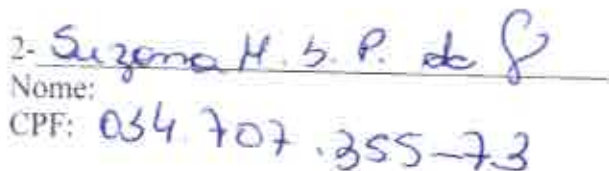 2- Suzana M. S. P. de S
Nome:
CPF: 034.707.355-73